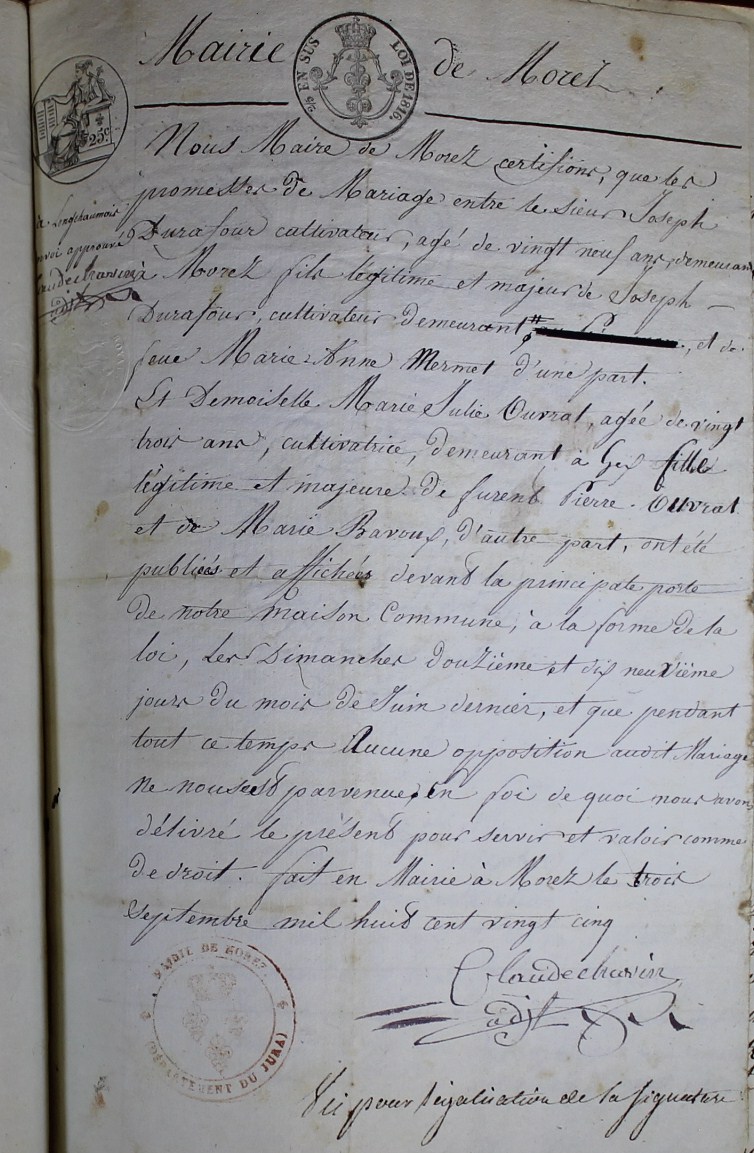 Mairie de Morez
2/5 EN SUS LOI DE 1816.
25c
Nous Maire de Morez certifions, que les
promesses de Mariage entre le sieur Joseph
Durafour cultivateur, agé de vingt neuf ans, demeurant
à Morez fils légitime et majeur de Joseph
Durafour, cultivateur demeurant # , et de
feue Marie-Anne Mermet d'une part.
Et Demoiselle Marie Julie Ouvrat, agée de vingt
trois ans, cultivatrice, demeurant à Gex fille
légitime et majeure de furent Pierre Ouvrat
et de Marie Bavoux, d'autre part, ont été
publiées et affichées devant la principale porte
de notre maison Commune, à la forme de la
loi, les Dimanches douzième et dix neuvième
jours du mois de Juin dernier, et que pendant
tout ce temps Aucune opposition audit Mariage
ne nous est parvenue, en foi de quoi nous avons
délivré le présent pour servir et valoir comme
de droit. fait en Mairie à Morez le trois
septembre mil huit cent vingt cinq
à Longchaumois
renvoi approuvé
Claudechavin
adjt
MAIRIE DE MOREZ
(DÉPARTEMENT DU JURA)
Vu pour légalisation de la signature